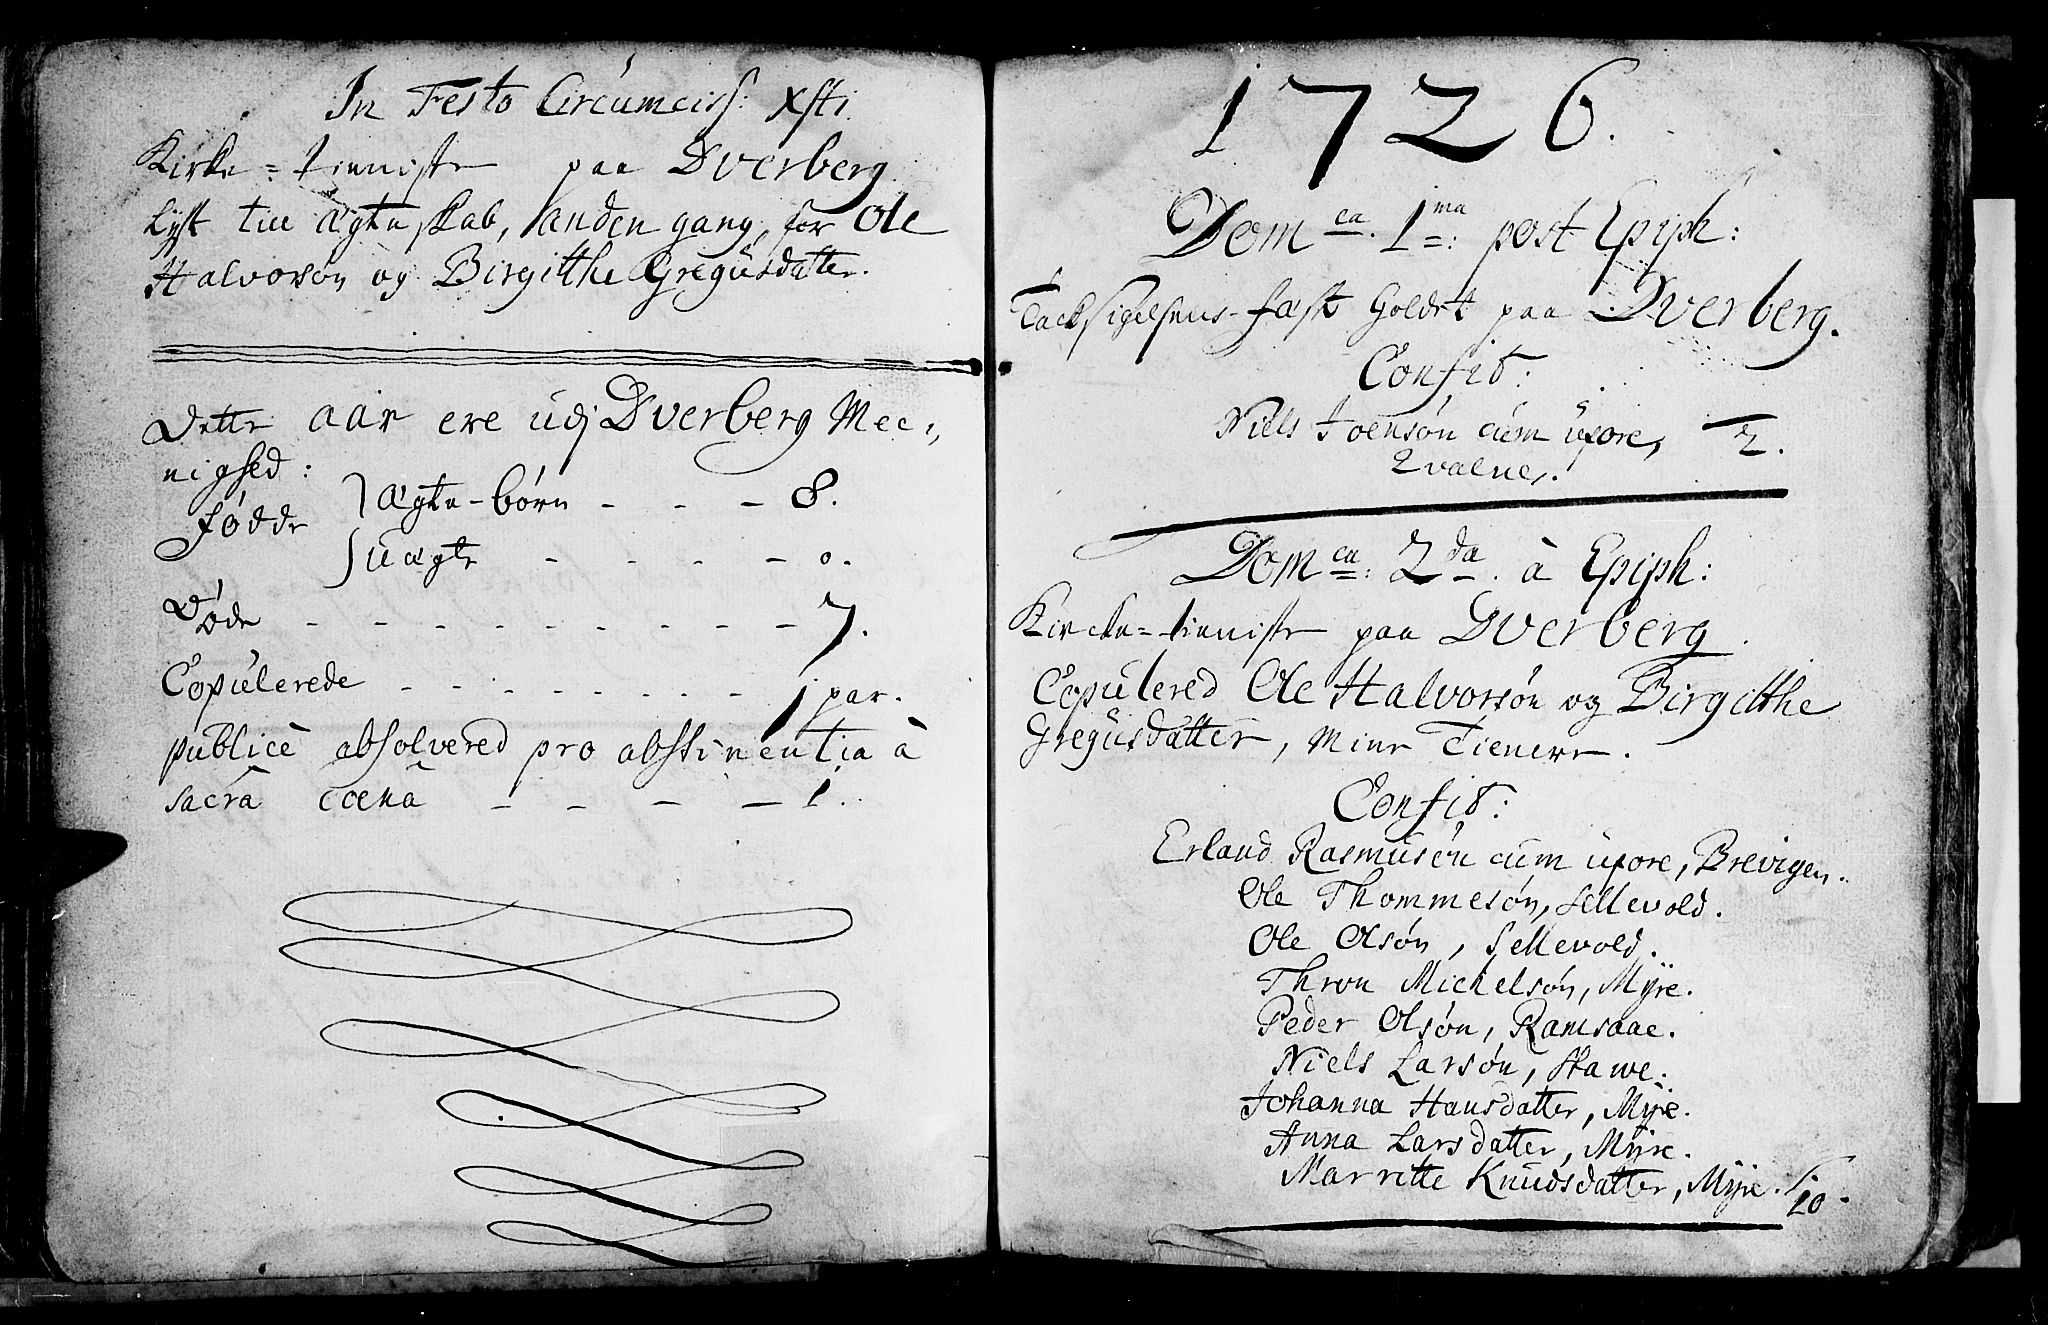 In Festo Circumciss: Xsti.
Kirke-tienniste paa Dverberg
Lyst till ægteskab, anden gang, for Ole
Halvorsøn og Birgitthe Gregusdatter.
Dette aar ere udj Dverberg Mee-,
nighed:
Fødde ægte-børn - - - 8.
uægte - - - - - 0.
Døde - - - - - - - - - 7.
Copulerede - - - - - - - 1 par.
publicè absolvered pro abstinentia à
sacra coena - - - - 1.
1726.
Dom ca. 1 ma: post Epiph:
Tacksigelsens-fæst holdet paa Dverberg.
Confit:
Niels Joensøn cum uxore,
Qvalne,. T 2.
Dom ca: 2 da. à Epiph:
Kircke-tienniste paa Dverberg.
Copulered Ole Halvorsøn og Birgitthe
Gregusdatter, mine Tienere.
Confit:
Erland Rasmusøn cum uxore, Brevigen.
Ole Thommesøn, Sellevold.
Ole Olsøn, Sellevold.
Thron Michelsøn, Myre.
Peder Olsøn, Ramsaae.
Niels Larsøn, Stawe.
Johanna Hansdatter, Myre.
Anna Larsdatter, Myre.
Marrette Knudsdatter, Myre. T. 10.